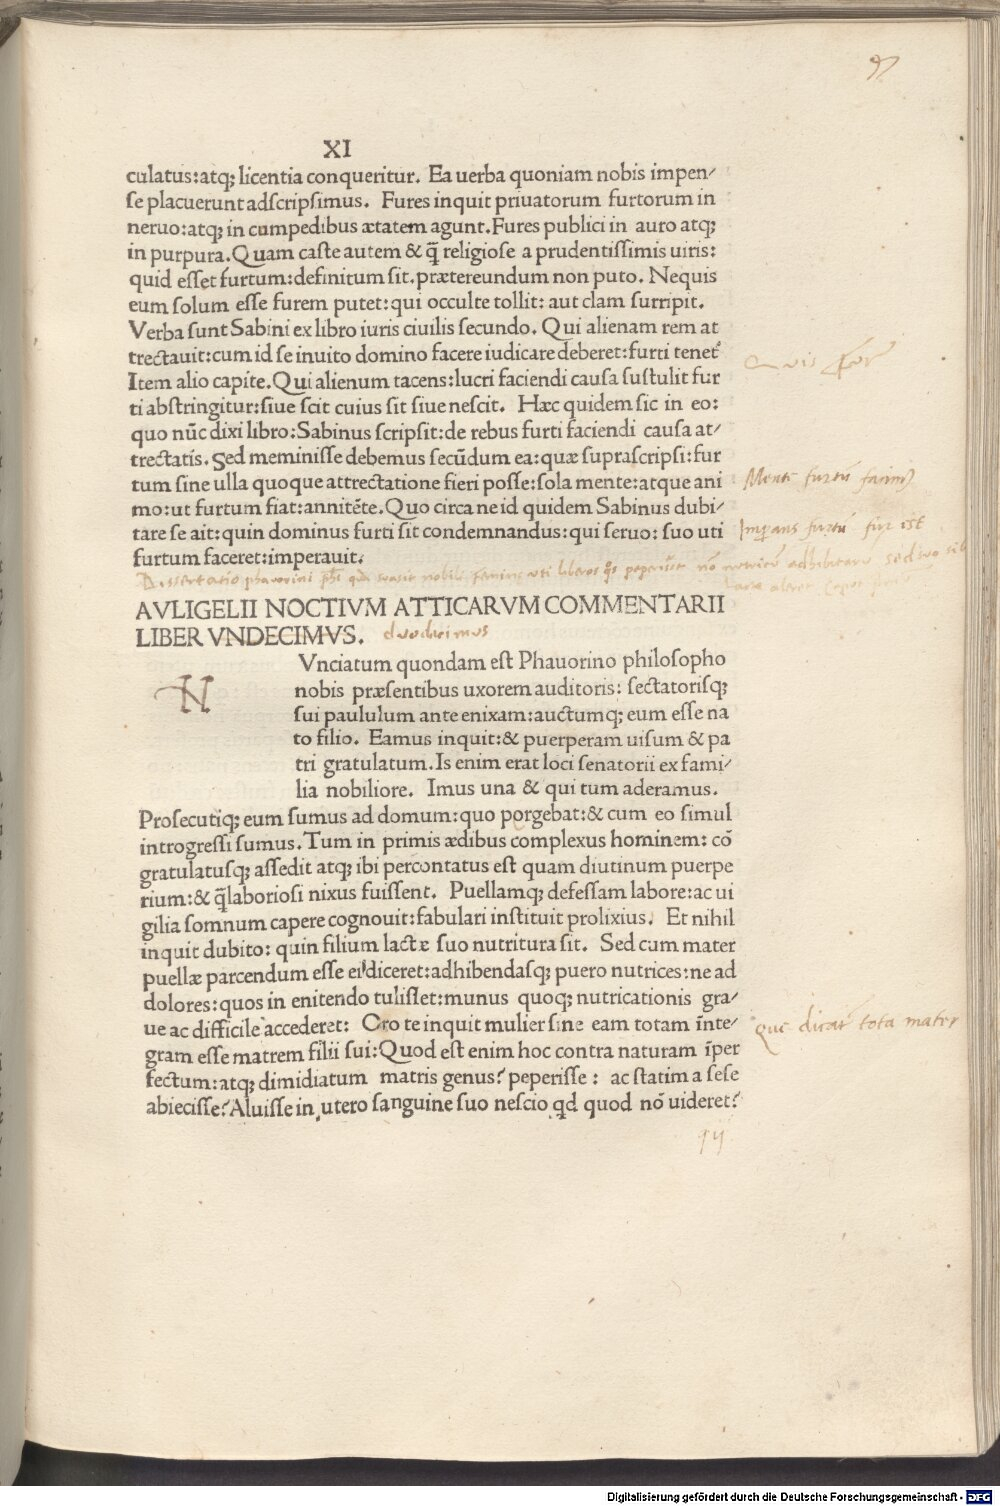 97
XI
culatus:atq; licentia conqueritur. Ea uerba quoniam nobis impen/
se placuerunt adscripsimus. Fures inquit priuatorum furtorum in
neruo:atq; in compedibus ætatem agunt. Fures publici in auro atq;
in purpura. Quam caste autem & q̃ religiose a prudentissimis uiris:
quid esset furtum:definitum sit. prætereundum non puto. Nequis
eum solum esse furem putet:qui occulte tollit: aut clam surripit.
Verba sunt Sabini ex libro iuris ciuilis secundo. Qui alienam rem at
trectauit:cum id se inuito domino facere iudicare deberet:furti tenet᷑
Quis
Item alio capite. Qui alienum tacens:lucri faciendi causa sustulit fur
ti abstringitur:siue scit cuius sit siue nescit. Hæc quidem sic in eo:
quo nũc dixi libro:Sabinus scripsit:de rebus furti faciendi causa at/
trectatis. Sed meminisse debemus secũdum ea:quæ suprascripsi:fur
tum sine ulla quoque attrectatione fieri posse:sola mente:atque ani
Mente furtũ
mo:ut furtum fiat:annitẽte. Quo circa ne id quidem Sabinus dubi/
tare se ait:quin dominus furti sit condemnandus:qui seruo: suo uti
furtũ fur est
furtum faceret:imperauit.
Dissertatio phavorini suasit nobili uti liberos peperisset nõ adhibitarũ sed suo
AVLIGELII NOCTIVM ATTICARVM COMMENTARII
LIBER VNDECIMVS. duodecimus
N
Vnciatum quondam est Phauorino philosopho
nobis præsentibus uxorem auditoris: sectatorisq;
sui paululum ante enixam:auctumq; eum esse na
to filio. Eamus inquit:& puerperam uisum & pa
tri gratulatum. Is enim erat loci senatorii ex fami/
lia nobiliore. Imus una & qui tum aderamus.
Prosecutiq; eum sumus ad domum:quo porgebat:& cum eo simul
introgressi sumus. Tum in primis ædibus complexus hominem: cõ
gratulatusq; assedit atq; ibi percontatus est quam diutinum puerpe
rium:& q̃laboriosi nixus fuissent. Puellamq; defessam labore:ac ui
gilia somnum capere cognouit:fabulari instituit prolixius. Et nihil
inquit dubito: quin filium lacte suo nutritura sit. Sed cum mater
puellæ parcendum esse ei diceret:adhibendasq; puero nutrices:ne ad
dolores:quos in enitendo tulisset:munus quoq; nutricationis gra/
ue ac difficile accederet: Oro te inquit mulier sine eam totam ĩnte/
que dicat᷑ tota mater
gram esse matrem filii sui:Quod est enim hoc contra naturam ĩper
fectum:atq; dimidiatum matris genus? peperisse: ac statim a sese
abiecisse? Aluisse in utero sanguine suo nescio qd quod nõ uideret?
q ij
Digitalisierung gefördert durch die Deutsche Forschungsgemeinschaft - DFG